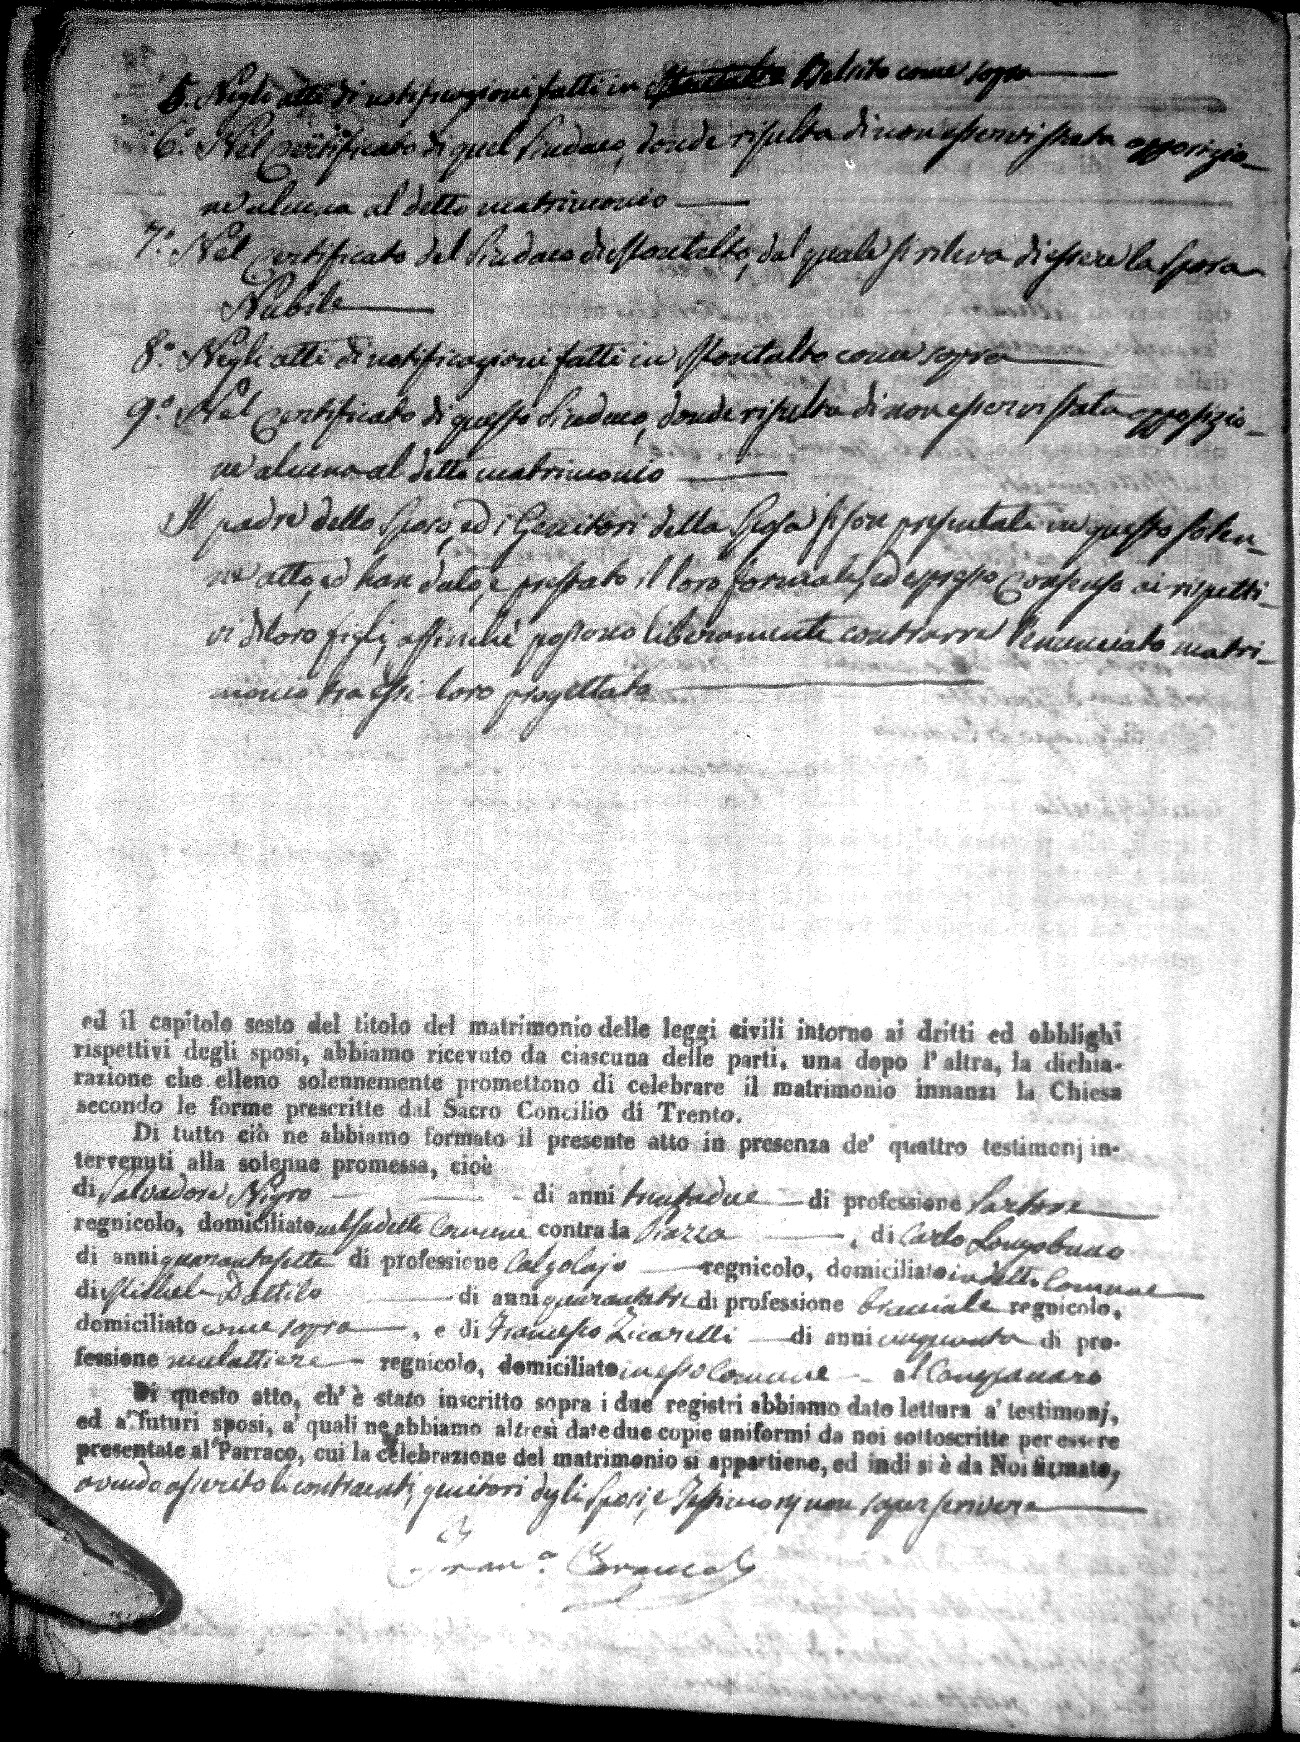 5. Negli atti di notificazioni fatti in Belsito come sopra
6.° Nel Certificato di quel Sindaco, donde risulta di non esservi stata opposizio-
ne alcuna al detto matrimonio
7.° Nel Certificato del Sindaco di Montalto, dal quale si rileva di essere la sposa
Nubile
8.° Negli atti di notificazioni fatti in Montalto come sopra
9.° Nel Certificato di questo Sindaco, donde risulta di non esservi stata opposizio-
ne alcuna al detto matrimonio
Il padre dello Sposo, ed i Genitori della Sposa si son presentati in questo solen-
ne atto, ed han dato, e prestato il loro formale, ed espresso consenso ai rispetti-
vi di loro figli, affinché possono liberamente contrarre l'enunciato matri-
monio tra essi loro progettato
ed il capitolo sesto del titolo del matrimonio delle leggi civili intorno ai dritti ed obblighi
rispettivi degli sposi, abbiamo ricevuto da ciascuna delle parti, una dopo l'altra, la dichia-
razione che elleno solennemente promettono di celebrare il matrimonio innanzi la Chiesa
secondo le forme prescritte dal Sacro Concilio di Trento.
Di tutto ciò ne abbiamo formato il presente atto in presenza de' quattro testimonj in-
tervenuti alla solenne promessa, cioè
di Salvadore Nigro di anni trentadue di professione Sartore
regnicolo, domiciliato nel sudetto Comune contrada Piazza, di Carlo Longobucco
di anni quarantasette di professione Calzolajo regnicolo, domiciliato in detto Comune
di Michele Dattilo di anni quarantatre di professione bracciale regnicolo,
domiciliato come sopra, e di Francesco Zicarelli di anni cinquanta di pro-
fessione mulattiere regnicolo, domiciliato in esso Comune al Campanaro
Di questo atto, ch' è stato inscritto sopra i due registri abbiamo dato lettura a' testimonj,
ed a' futuri sposi, a' quali ne abbiamo altresì date due copie uniformi da noi sottoscritte per essere
presentate al Parraco, cui la celebrazione del matrimonio si appartiene, ed indi si è da Noi firmato,
avendo asserito li contraenti, genitori degli Sposi, e Testimonj non saper scrivere
Fran.°